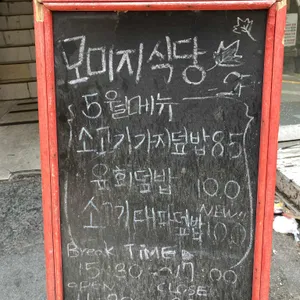 모미지식당
5월메뉴
소고기가지덮밥 8.5
육회덮밥 10.0
소고기대파덮밥 10.0
NEW!!
Break TIME
15:30~17:00
OPEN CLOSE